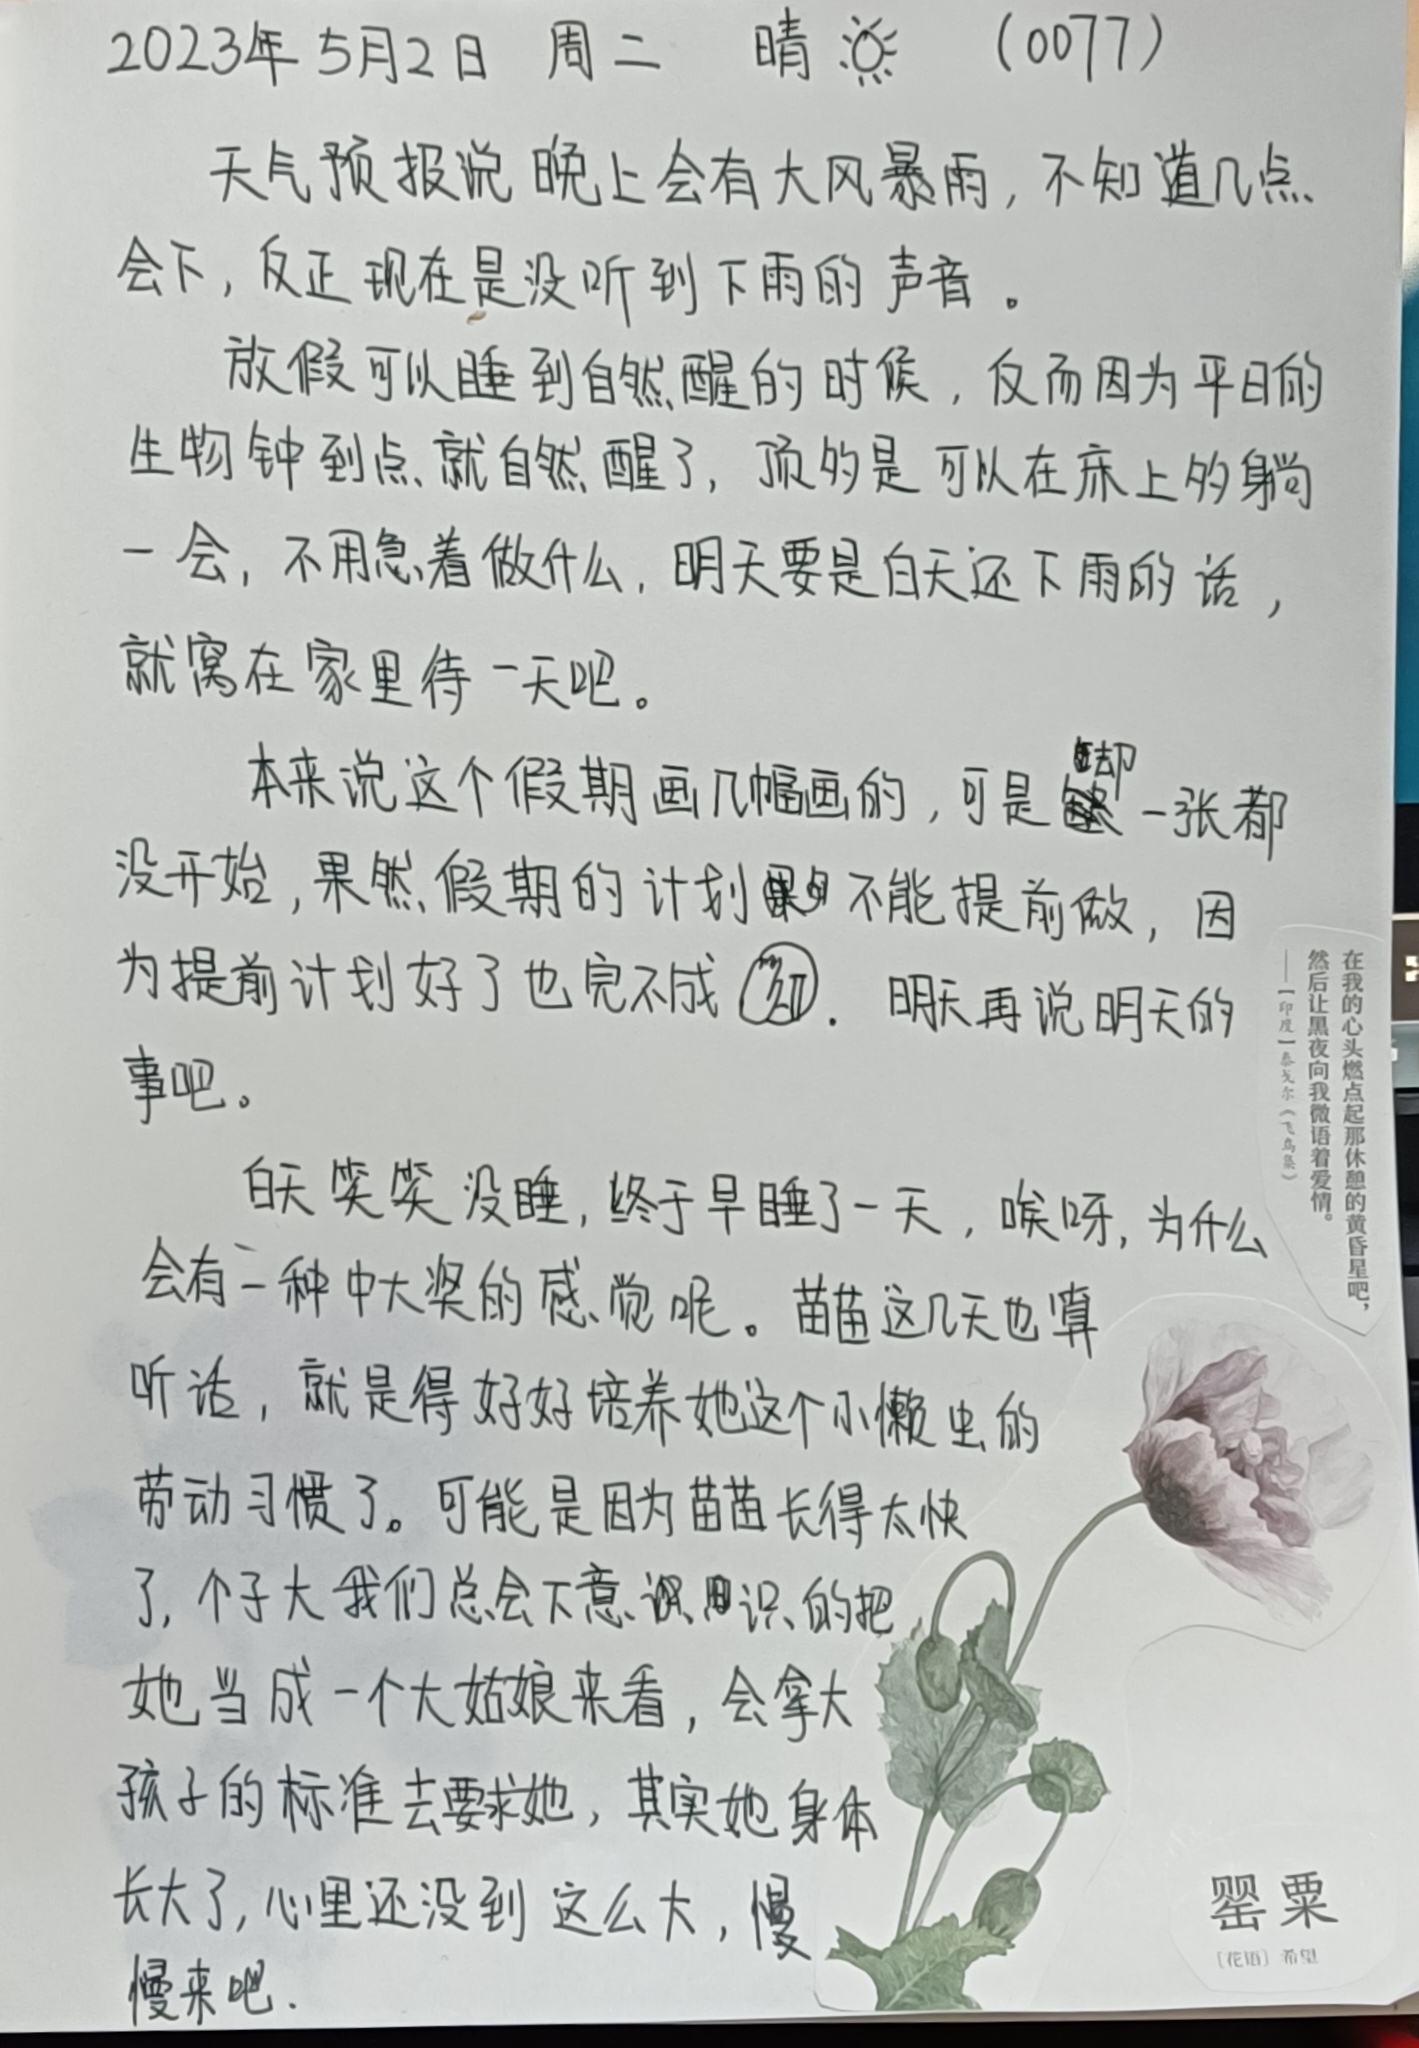 2023年5月2日 周二 晴 (0077)
天气预报说晚上会有大风暴雨，不知道几点
会下，反正现在是没听到下雨的声音。
放假可以睡到自然醒的时候，反而因为平日的
生物钟到点就自然醒了，顶多是可以在床上多躺
一会，不用急着做什么，明天要是白天还下雨的话，
就窝在家里待一天吧。
本来说这个假期画几幅画的，可是却一张都
没开始，果然假期的计划不能提前做，因
为提前计划好了也完不成。明天再说明天的
事吧。
白天笑笑没睡，终于早睡了一天，唉呀，为什么
会有一种中大奖的感觉呢。苗苗这几天也算
听话，就是得好好培养她这个小懒虫的
劳动习惯了。可能是因为苗苗长得太快
了，个子大我们总会下意识的把
她当成一个大姑娘来看，会拿大
孩子的标准去要求她，其实她身体
长大了，心里还没到这么大，慢
慢来吧.
在我的心头燃点起那休憩的黄昏星吧，
然后让黑夜向我微语着爱情。
——［印度］泰戈尔《飞鸟集》
罂粟
［花语］希望